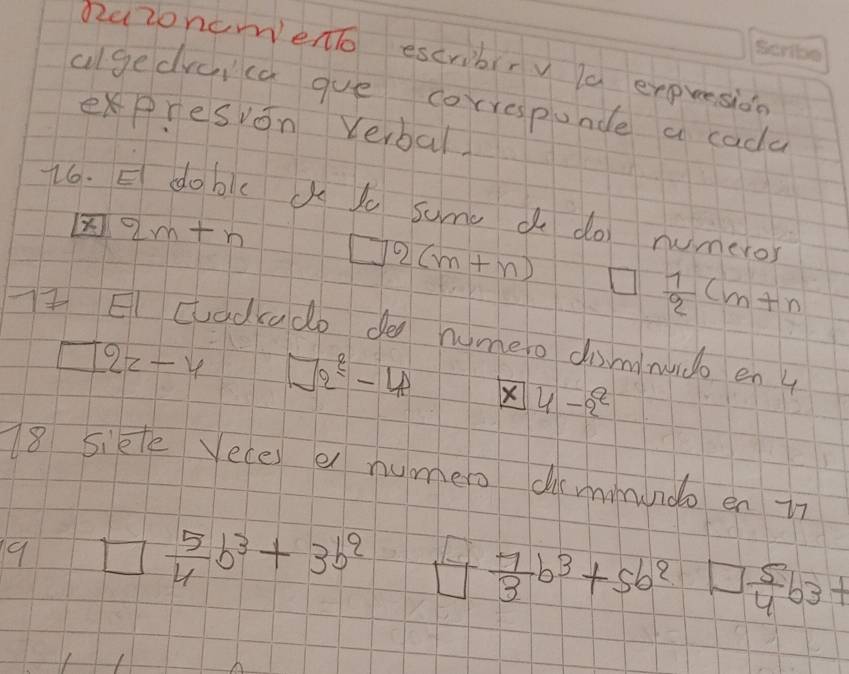 Razonamiento escribir v la expresión
algedraica que corresponde a cada
expresión verbal.
Scribe
16. El doble de la suma de dos numeros
☒ 2m+n ☐ 2(m+n) ☐ 1/2 (m+n
17 El Cuadrado del numero disminuido en 4
☐ 2z-4 ☐ z²-4 ☒ 4-z²
18 siete veces el numero disminuido en 11
19 ☐ 5/4 b³ + 3b² ☐ 7/3 b³ + 5b² ☐ 5/4 b3 +